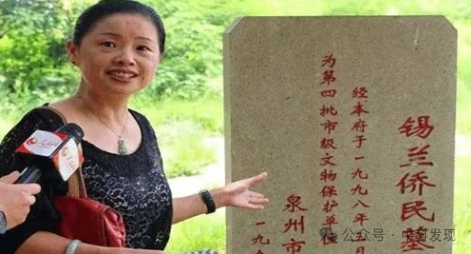 锡兰侨民墓
经本府于一九九八年五月
为第四批市级文物保护单位
泉州市
一九
公众号 · 发现